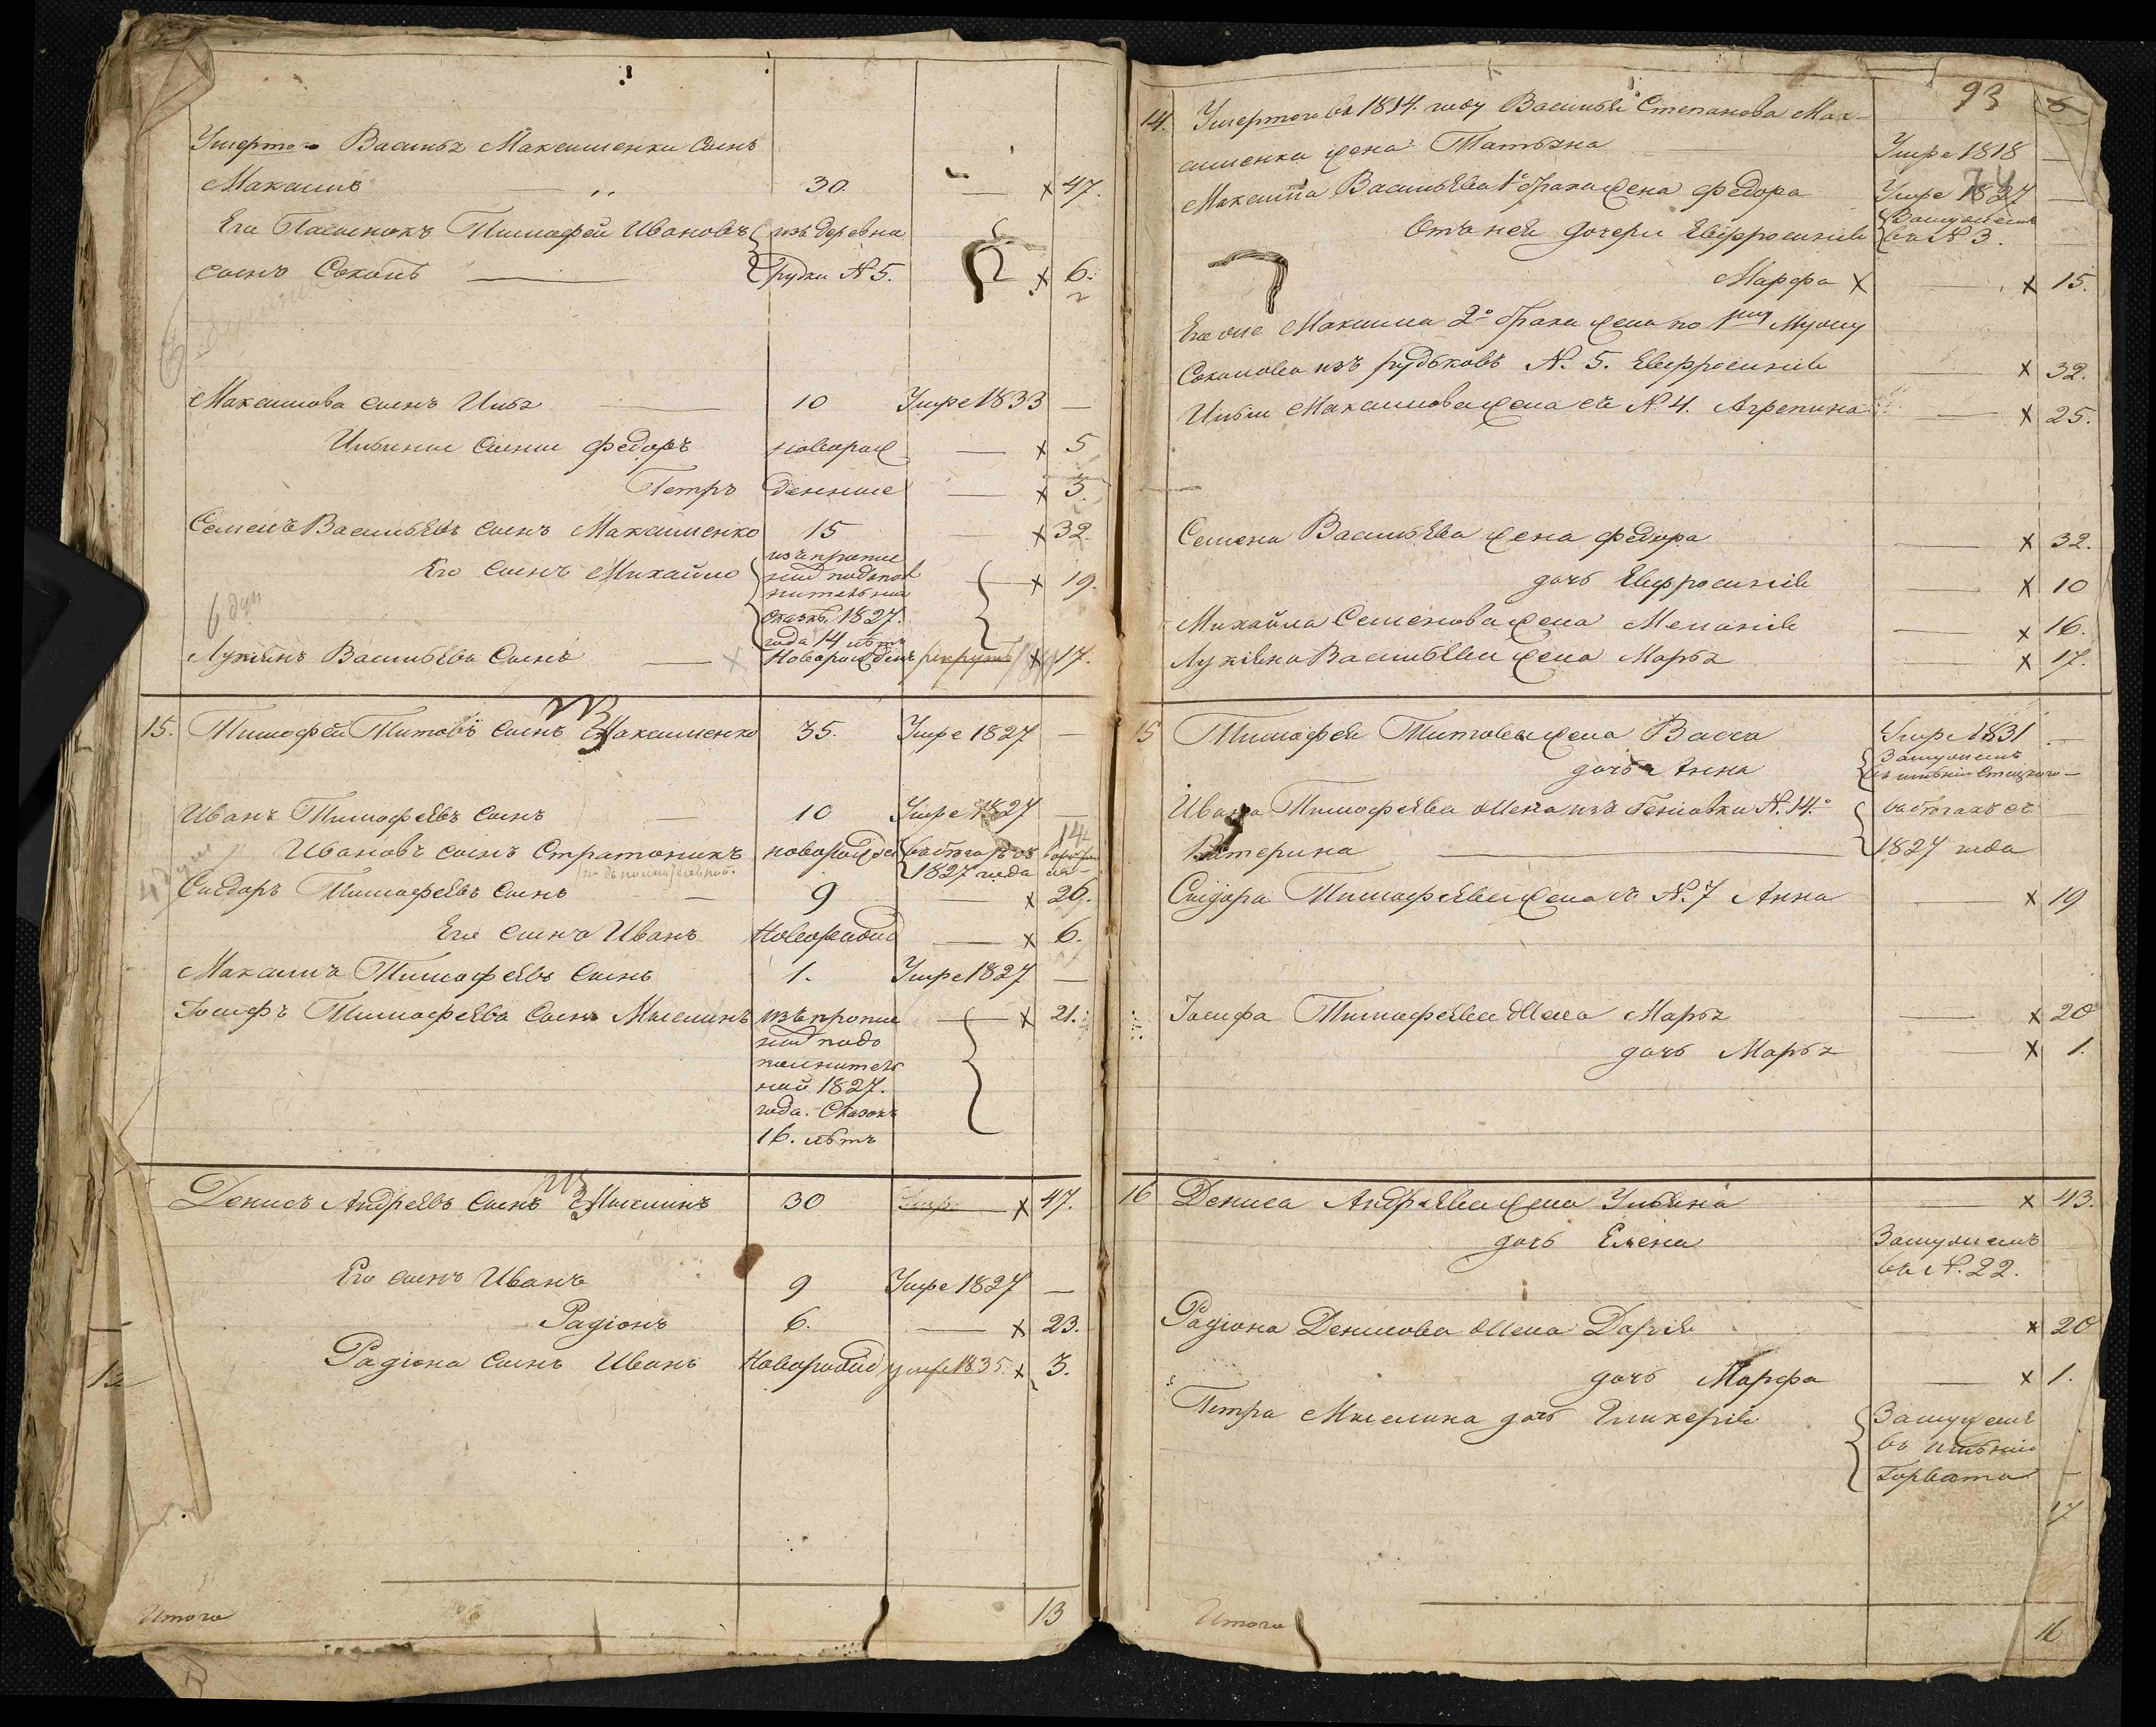 Умертого Василья Максименки сынъ
Максимъ 30. — x 47.
Его Пасынокъ Тимофей Ивановъ изъ деревни
сынъ Соколъ — рудки N 5. x 6.
Максимова сынъ Илья — 10 Умре 1833 —
Ильины сыны Федоръ новорож — x 5
Петръ денные — x 3.
Семенъ Васильевъ сынъ Максименко 15 — x 32.
Его сынъ Михайло изъ пропис
ной
x 19.
сказкѣ 1827.
года 14 лѣтъ
6 душ
Лукіянъ Васильевъ сынъ — Новорожденъ рекрутъ x 17.
15. Тимофей Титовъ сынъ Максименко 35. Умре 1827 —
Иванъ Тимофѣевъ сынъ — 10 Умре 1827 —
14
Ивановъ сынъ Стратоникъ новорожден въ бѣгахъ съ
1827 года
Сидоръ Тимофѣевъ сынъ — 9 — x 26.
Его сынъ Иванъ Новорожд — x 6.
Максимъ Тимофѣевъ сынъ 1. Умре 1827 —
Іосифъ Тимофѣевъ сынъ Мыслинъ изъ пропис — x 21.
ной допо
лнитель
ной 1827.
года. Сказокъ
16. лѣтъ
Денисъ Андреевъ сынъ Мыслинъ 30 x 47.
Его сынъ Иванъ 9 Умре 1827 —
Радіонъ 6. — x 23.
Радіона сынъ Иванъ Новорожд умре 1835. x 3.
Итого 13
93
14. Умертого въ 1814. году Василья Степанова Мак-
сименки жена Татьяна — Умре 1818 —
Максима Васильева 1го брака жена Федора Умре 1827 —
Отъ ней дочери Евфросинія Замужемъ
въ N 3.
Марфа x — x 15.
Его же Максима 2о брака жена по 1му Мужу
Соколова изъ рудьковъ N. 5. Евфросинія — x 32.
Ильи Максимова жена съ N. 4. Агрепина — x 25.
Семена Васильева жена Федора — x 32.
дочь Евфросинія — x 10
Михайла Семенова жена Меланія — x 16.
Лукіяна Васильева жена Марья — x 17.
15 Тимофея Титова жена Васса Умре 1831 —
дочь Анна Замужемъ
въ имѣніи —
Ивана Тимофѣева жена изъ N. 14. въ бѣгахъ съ
Катерина — 1827 года
Сидора Тимофѣева жена съ N. 7 Анна — x 19
Іосифа Тимофѣева жена Марья — x 20
дочь Марья — x 1.
16 Дениса Андрѣева жена Ульяна — x 43.
дочь Елена Замужемъ
въ N. 22.
Радіона Денисова жена Дарія x 20
дочь Марфа — x 1.
Петра Мыслина дочь Гликерія Замужемъ
въ имѣніи
Горвата —
17
Итого 16